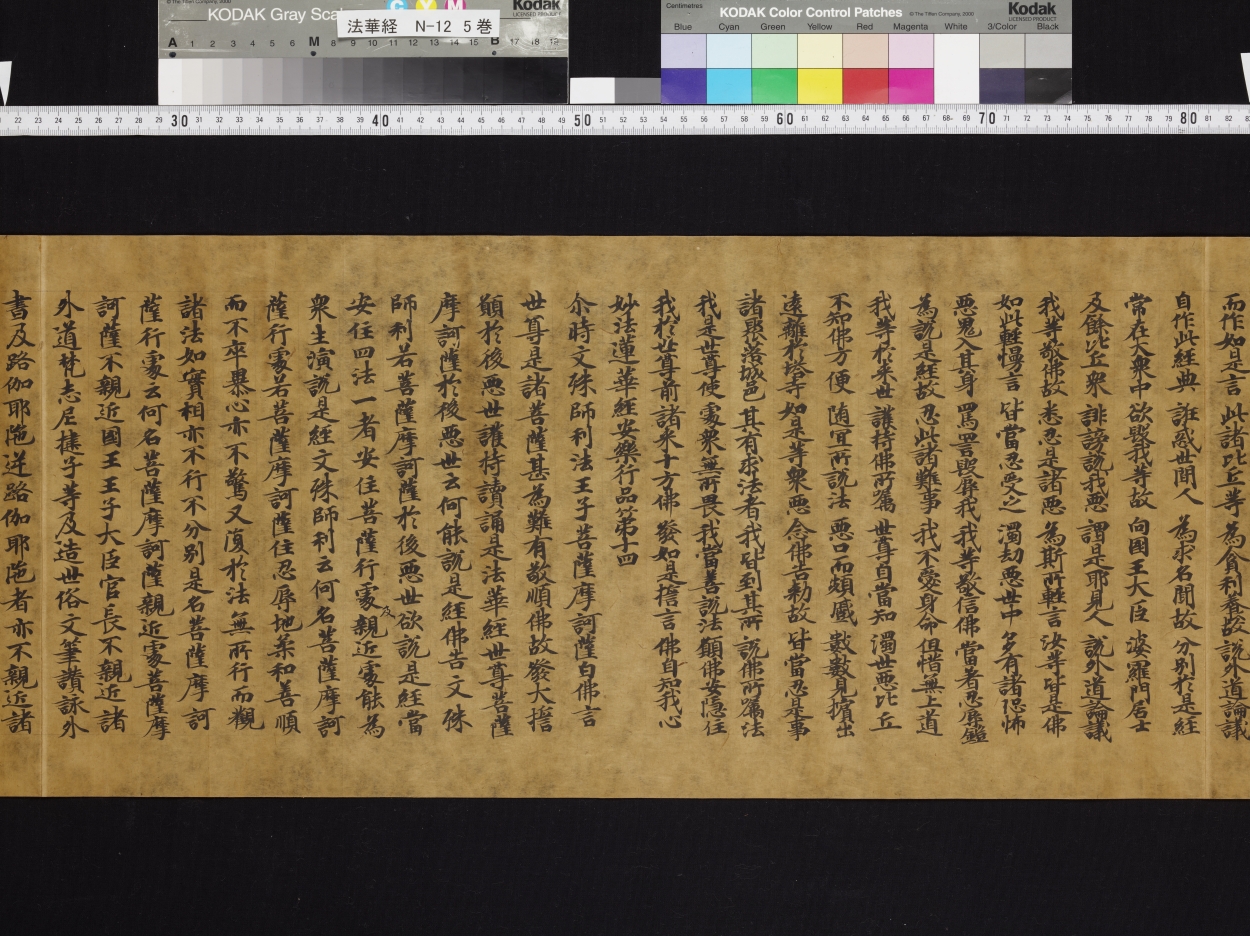 © The Tiffen Company, 2000
KODAK Gray Scale
C Y M
Kodak
LICENSED PRODUCT
法華経 N-12 5巻
A 1 2 3 4 5 6 M 8 9 10 11 12 13 14 15 B 17 18 19
Centimetres
KODAK Color Control Patches
© The Tiffen Company, 2000
Kodak
LICENSED PRODUCT
Blue Cyan Green Yellow Red Magenta White 3/Color Black
22 23 24 25 26 27 28 29 30 31 32 33 34 35 36 37 38 39 40 41 42 43 44 45 46 47 48 49 50 51 52 53 54 55 56 57 58 59 60 61 62 63 64 65 66 67 68 69 70 71 72 73 74 75 76 77 78 79 80 81 82
而作如是言 此諸比丘等 為貪利養故 說外道論議
自作此經典 誑惑世間人 為求名聞故 分別於是經
常在大衆中 欲毀我等故 向國王大臣 婆羅門居士
及餘比丘衆 誹謗說我惡 謂是耶見人 說外道論議
我等敬佛故 悉忍是諸惡 為斯所輕言 汝等皆是佛
如此輕慢言 皆當忍受之 濁劫惡世中 多有諸恐怖
惡鬼入其身 罵詈毀辱我 我等敬信佛 當著忍辱鎧
為說是經故 忍此諸難事 我不愛身命 但惜無上道
我等於來世 護持佛所囑 世尊自當知 濁世惡比丘
不知佛方便 隨宜所說法 惡口而頻蹙 數數見擯出
遠離於塔寺 如是等衆惡 念佛告勅故 皆當忍是事
諸聚落城邑 其有求法者 我皆到其所 說佛所囑法
我是世尊使 處衆無所畏 我當善說法 願佛安隱住
我於世尊前 諸來十方佛 發如是擔言 佛自知我心
妙法蓮華經安樂行品第十四
尒時文殊師利法王子菩薩摩訶薩白佛言
世尊是諸菩薩甚為難有敬順佛故發大擔
願於後惡世護持讀誦是法華經世尊菩薩
摩訶薩於後惡世云何能說是經佛告文殊
師利若菩薩摩訶薩於後惡世欲說是經當
安住四法一者安住菩薩行處及親近處能為
衆生演說是經文殊師利云何名菩薩摩訶
薩行處若菩薩摩訶薩住忍辱地柔和善順
而不卒暴心亦不驚又復於法無所行而觀
諸法如實相亦不行不分別是名菩薩摩訶
薩行處云何名菩薩摩訶薩親近處菩薩摩
訶薩不親近國王王子大臣官長不親近諸
外道梵志尼揵子等及造世俗文筆讚詠外
書及路伽耶陁逆路伽耶陁者亦不親近諸